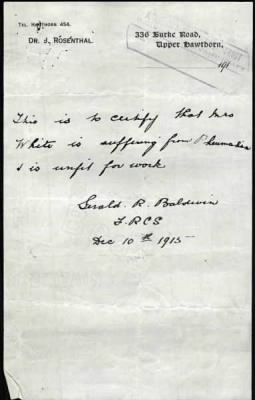 TEL. HAWTHORN 454.
DR. J. ROSENTHAL.
336 Burke Road,
Upper Hawthorn,
191
This is to certify that Mrs
White is suffering from Rheumatism
& is unfit for work
Gerald. R. Baldwin
F.R.C.S
Dec 10th 1915